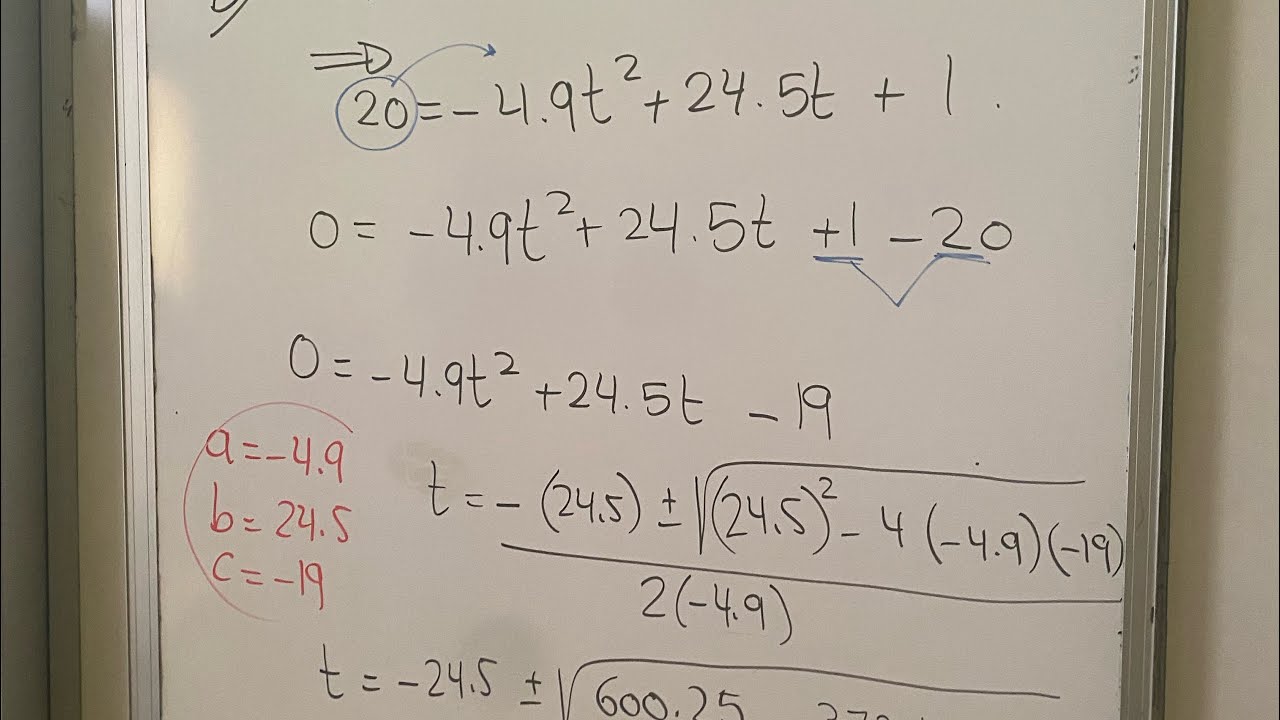 ⇒
20 = -4.9t² + 24.5t + 1.
0 = -4.9t² + 24.5t +1 - 20
0 = -4.9t² + 24.5t - 19
a = -4.9
b = 24.5
c = -19
t = -(24.5) ± √(24.5)² - 4(-4.9)(-19)
2(-4.9)
t = -24.5 ± √600.25